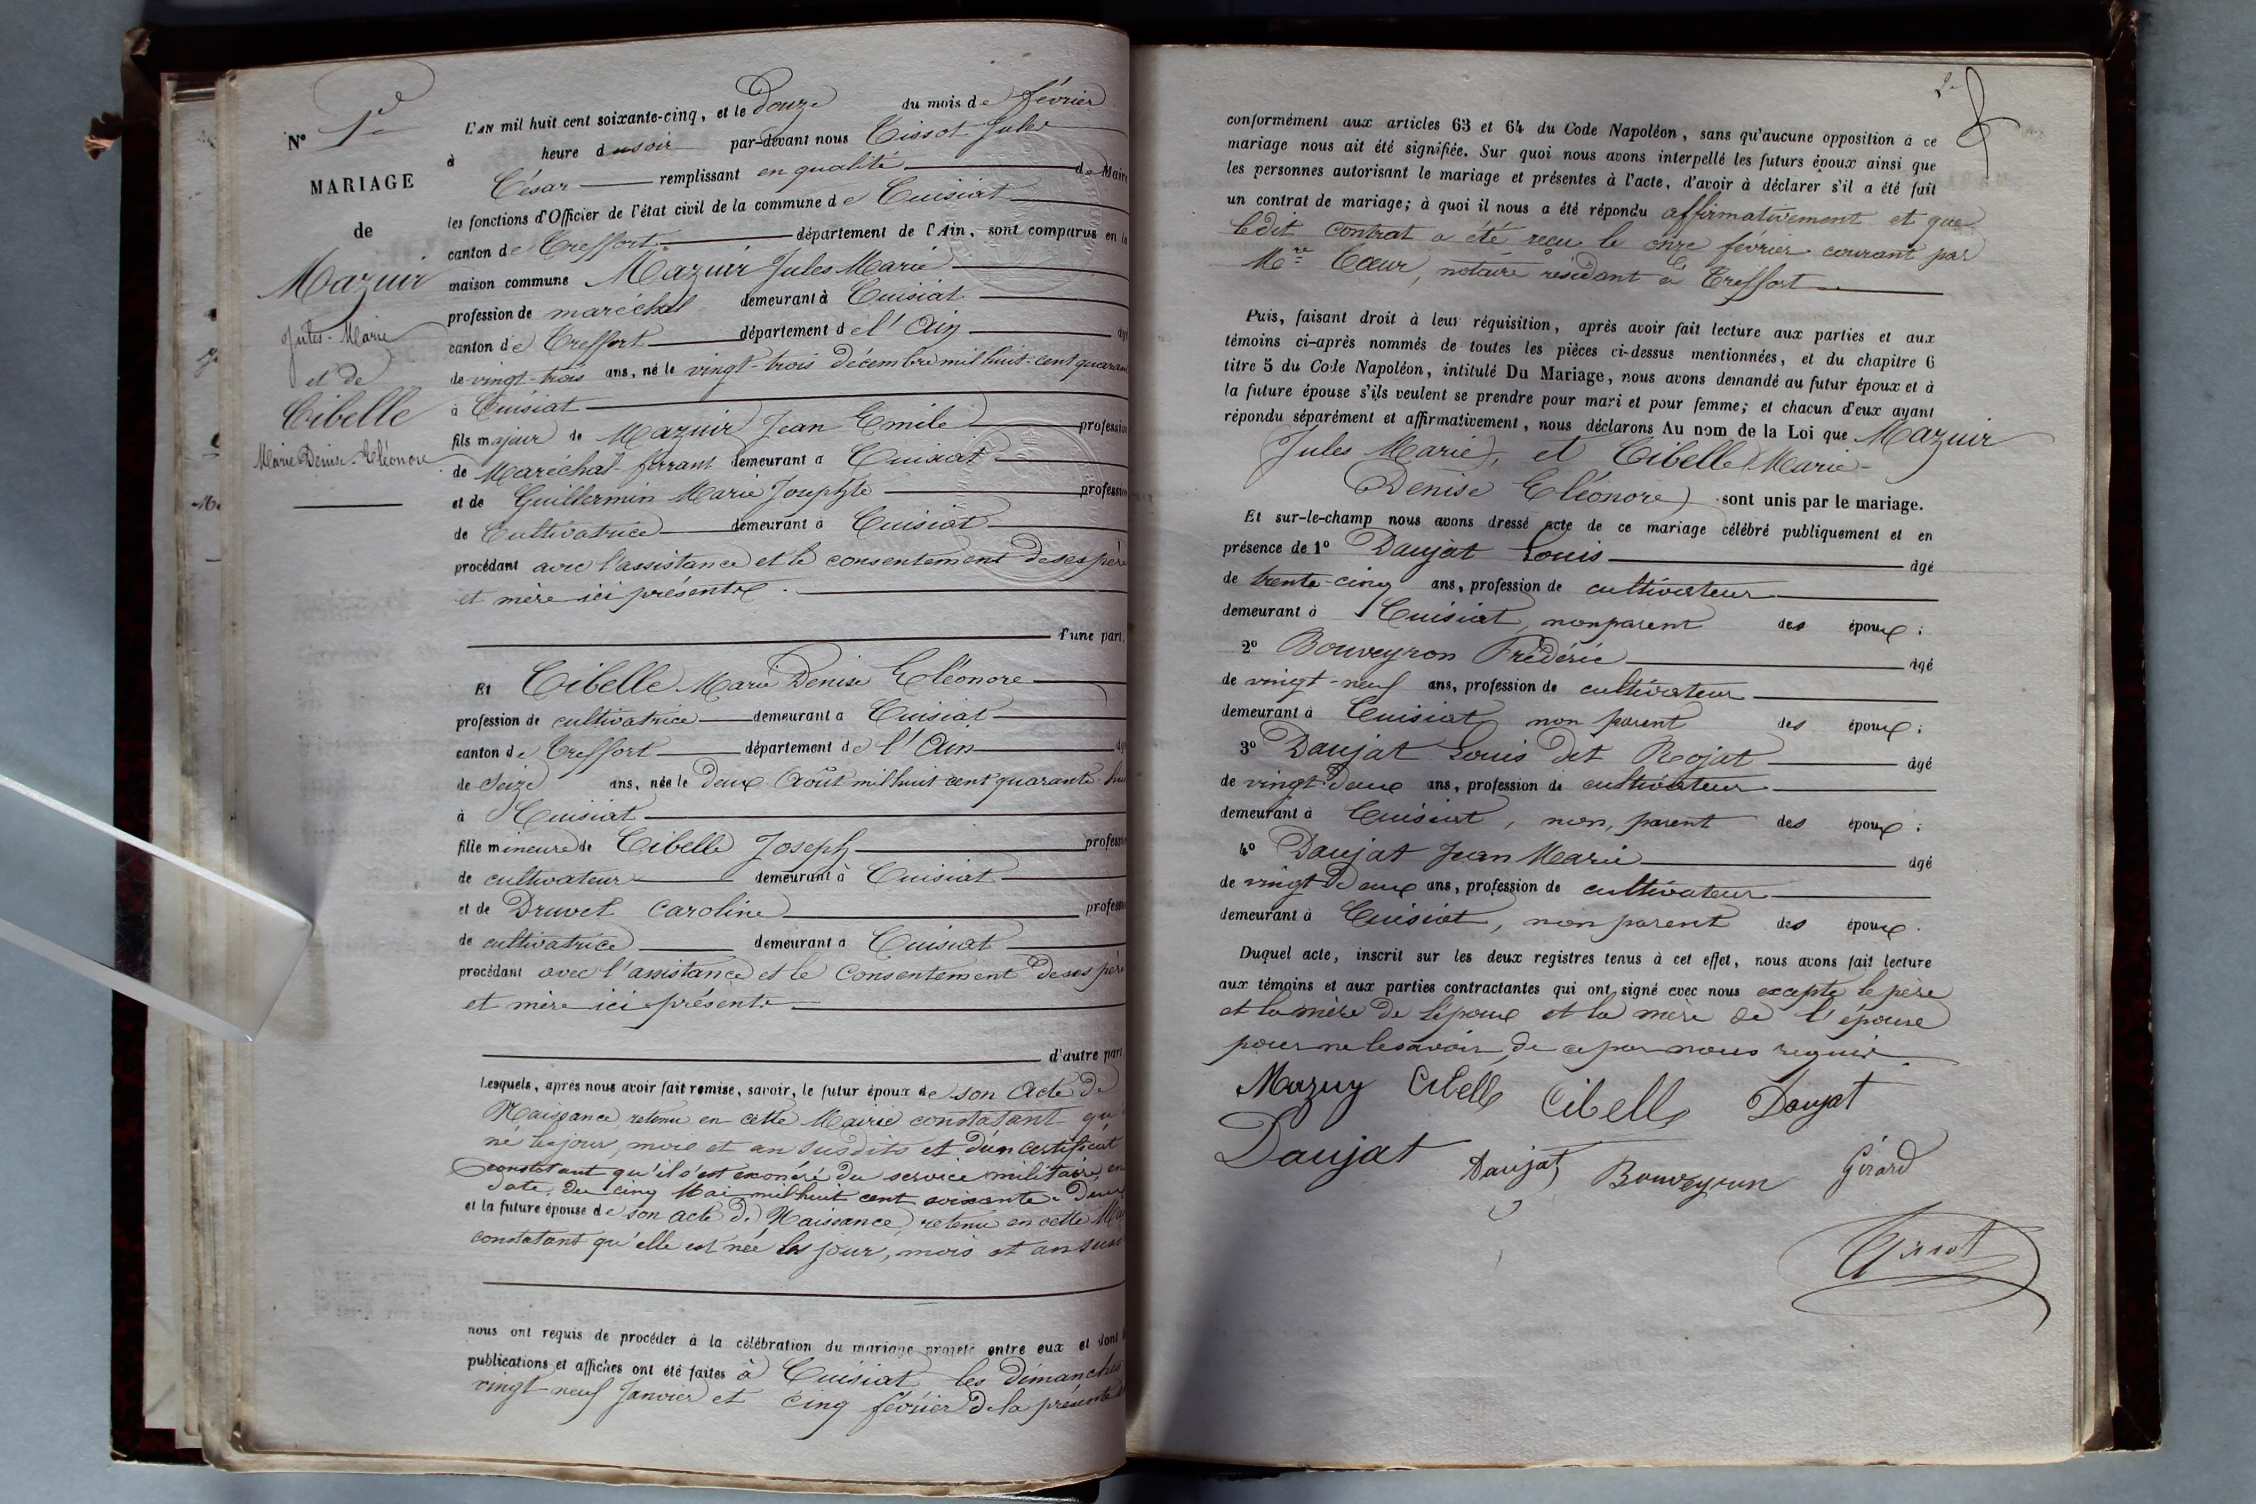 N° 1er
MARIAGE
de
Mazuir
Jules-Marie
et de
Cibelle
Marie Denise-Eléonore
L'AN mil huit cent soixante-cinq, et le Douze du mois de février
à heure du soir par-devant nous Tissot Jules
César remplissant en qualité de Maire
les fonctions d'Officier de l'état civil de la commune de Cuisiat
canton de Treffort département de l'Ain, sont comparus en la
maison commune Mazuir Jules Marie
profession de maréchal demeurant à Cuisiat
canton de Treffort département de l'Ain âgé
de vingt-trois ans, né le vingt-trois décembre mil huit-cent quaran
à Cuisiat
fils majeur de Mazuir Jean Emile profession
de Maréchal-ferrant demeurant à Cuisiat
et de Guillermin Marie Josephte profession
de Cultivatrice demeurant à Cuisiat
procédant avec l'assistance et le consentement de ses père
et mère ici présents.
d'une part.
Et Cibelle Marie Denise Eléonore
profession de cultivatrice demeurant à Cuisiat
canton de Treffort département de l'Ain âgé
de Seize ans, née le Deux Août mil huit cent quarante-hui
à Cuisiat
fille mineure de Cibelle Joseph profession
de cultivateur demeurant à Cuisiat
et de Druvet Caroline profession
de cultivatrice demeurant à Cuisiat
procédant avec l'assistance et le Consentement de ses père
et mère ici présents
d'autre part
Lesquels, après nous avoir fait remise, savoir, le futur époux de son Acte de
Naissance retenu en cette Mairie constatant qu'
né les jour, mois et an susdits et d'un certificat
constatant qu'il s'est exonéré du service militaire en
date du cinq Mai mil huit cent soixante-Deux
et la future épouse de son acte de Naissance, retenu en cette Mai
constatant qu'elle est née les jour, mois et an susd
nous ont requis de procéder à la célébration du mariage projeté entre eux et dont
publications et affiches ont été faites à Cuisiat les dimanches
vingt-neuf Janvier et cinq février de la présente
2e
conformément aux articles 63 et 64 du Code Napoléon, sans qu'aucune opposition à ce
mariage nous ait été signifiée. Sur quoi nous avons interpellé les futurs époux ainsi que
les personnes autorisant le mariage et présentes à l'acte, d'avoir à déclarer s'il a été fait
un contrat de mariage; à quoi il nous a été répondu affirmativement et que
ledit contrat a été reçu le onze février courant par
Mre Cœur, notaire résidant à Treffort
Puis, faisant droit à leur réquisition, après avoir fait lecture aux parties et aux
témoins ci-après nommés de toutes les pièces ci-dessus mentionnées, et du chapitre 6
titre 5 du Code Napoléon, intitulé Du Mariage, nous avons demandé au futur époux et à
la future épouse s'ils veulent se prendre pour mari et pour femme; et chacun d'eux ayant
répondu séparément et affirmativement, nous déclarons Au nom de la Loi que Mazuir
Jules Marie, et Cibelle Marie-
Denise Eléonore sont unis par le mariage.
Et sur-le-champ nous avons dressé acte de ce mariage célébré publiquement et en
présence de 1° Daujat Louis âgé
de trente-cinq ans, profession de cultivateur
demeurant à Cuisiat, non parent des époux;
2° Bouveyron Frédéric âgé
de vingt-neuf ans, profession de cultivateur
demeurant à Cuisiat non parent des époux;
3° Daujat Louis dit Rojat âgé
de vingt Deux ans, profession de cultivateur
demeurant à Cuisiat, non, parent des époux;
4° Daujat Jean Marie âgé
de vingt Deux ans, profession de cultivateur
demeurant à Cuisiat, non parent des époux.
Duquel acte, inscrit sur les deux registres tenus à cet effet, nous avons fait lecture
aux témoins et aux parties contractantes qui ont signé avec nous excepté le père
et la mère de l'époux et la mère de l'épouse
pour ne le savoir, de ce par nous requis
Mazuy Cibelle Cibelle Daujat
Daujat Daujat Bouveyron Gérard
Tissot